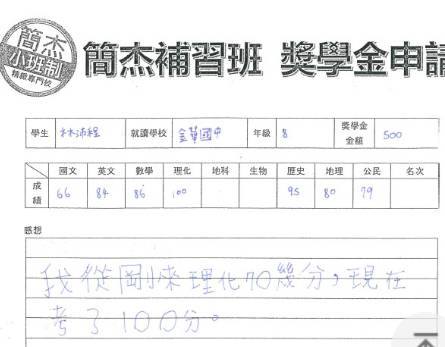 簡杰
小班制
精緻專門校
簡杰補習班 獎學金申請
學生 林沛程 就讀學校 金華國中 年級 8 獎學金金額 500
國文 英文 數學 理化 地科 生物 歷史 地理 公民 名次
成績 66 84 86 100 95 80 79
感想
我從剛來理化70幾分,現在
考了100分。